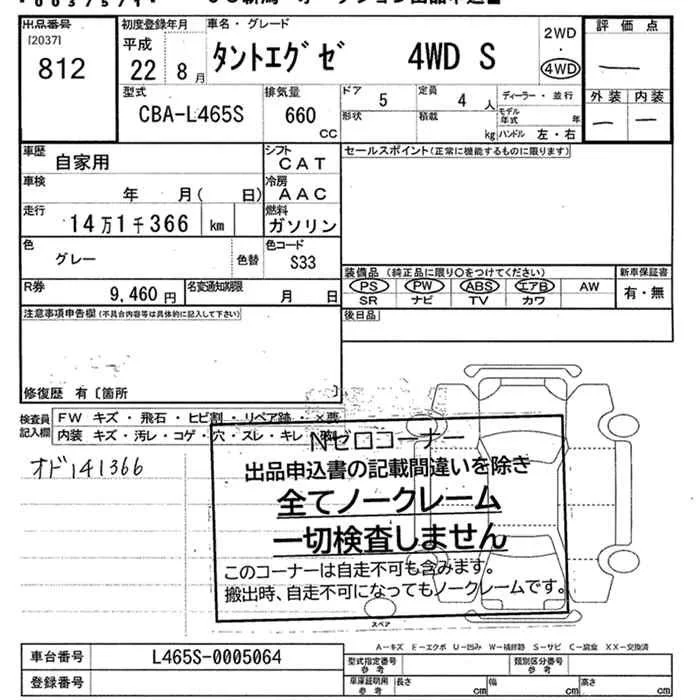 出品番号 初度登録年月 車名・グレード 評価点
[2037] 812 平成 22 8月 タントエグゼ 4WD S 2WD・4WD —
型式 排気量 ドア 5 定員 4人 ディーラー・並行 外装 内装
CBA-L465S 660 CC 形状 積載 kg モデル年式 年 ハンドル 左・右 — —
車歴 自家用 シフト CAT セールスポイント(正常に機能するものに限ります)
車検 年 月( 日) 冷房 AAC
走行 14万1千366 km 燃料 ガソリン
色 グレー 色替 色コード S33
装備品 (純正品に限り○をつけてください) 新車保証書
R券 9,460円 名変通知期限 月 日 PS PW ABS エアB AW 有・無
SR ナビ TV カワ
注意事項申告欄(不具合内容等は具体的に記入して下さい) 後日品
修復歴 有〔箇所 〕
検査員記入欄 FW キズ・飛石・ヒビ割・リペア跡・×要
内装 キズ・汚レ・コゲ・穴・スレ・キレ
オド141366
Nゼロコーナー
出品申込書の記載間違いを除き
全てノークレーム
一切検査しません
このコーナーは自走不可も含みます。
搬出時、自走不可になってもノークレームです。
スペア
A-キズ E-エクボ U-凹み W-補修跡 S-サビ C-腐食 XX-交換済
車台番号 L465S-0005064 型式指定番号 参考 類別区分番号 参考
登録番号 車庫証明用 参考 長さ cm 幅 cm 高さ cm